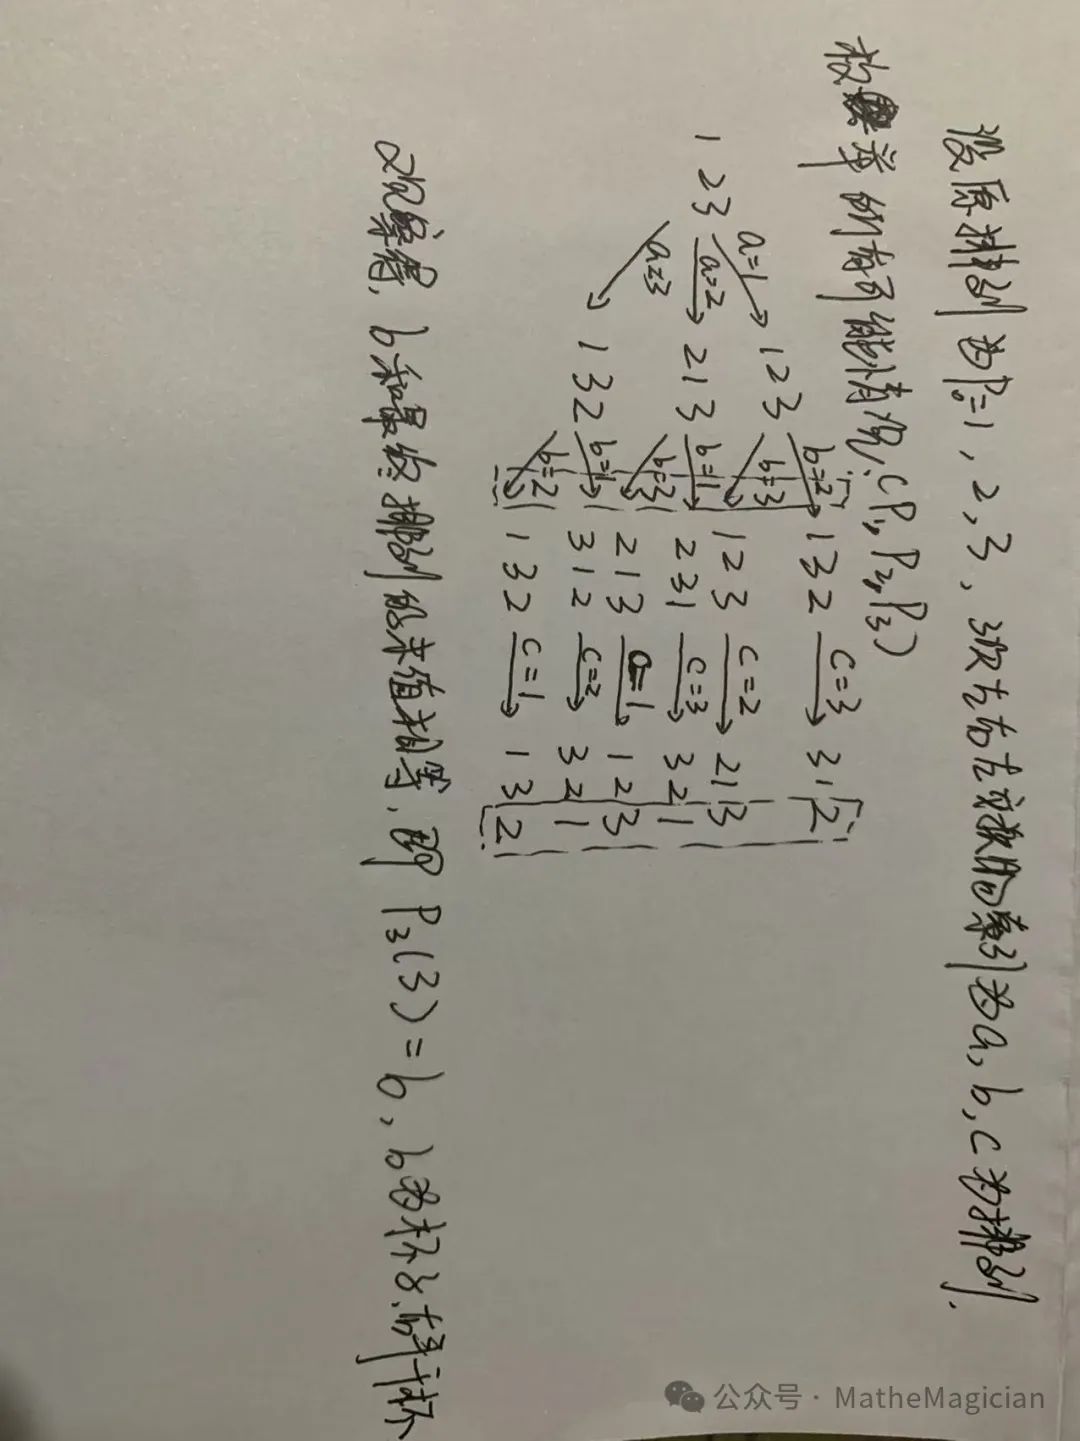 设原排列为P₀=1,2,3,3次左右左交换的索引为a,b,c为排列.
枚举所有可能情况:(P₁,P₂,P₃)
a=1 123 b=2 132 c=3 312
b=3 123 c=2 213
123 a=2 213 b=1 231 c=3 321
b=3 213 c=1 123
a=3 132 b=1 312 c=2 321
b=2 132 c=1 132
观察得,b和最终排列的末值相等,即P₃(3)=b,b为杯子,右手杯
公众号·MatheMagician